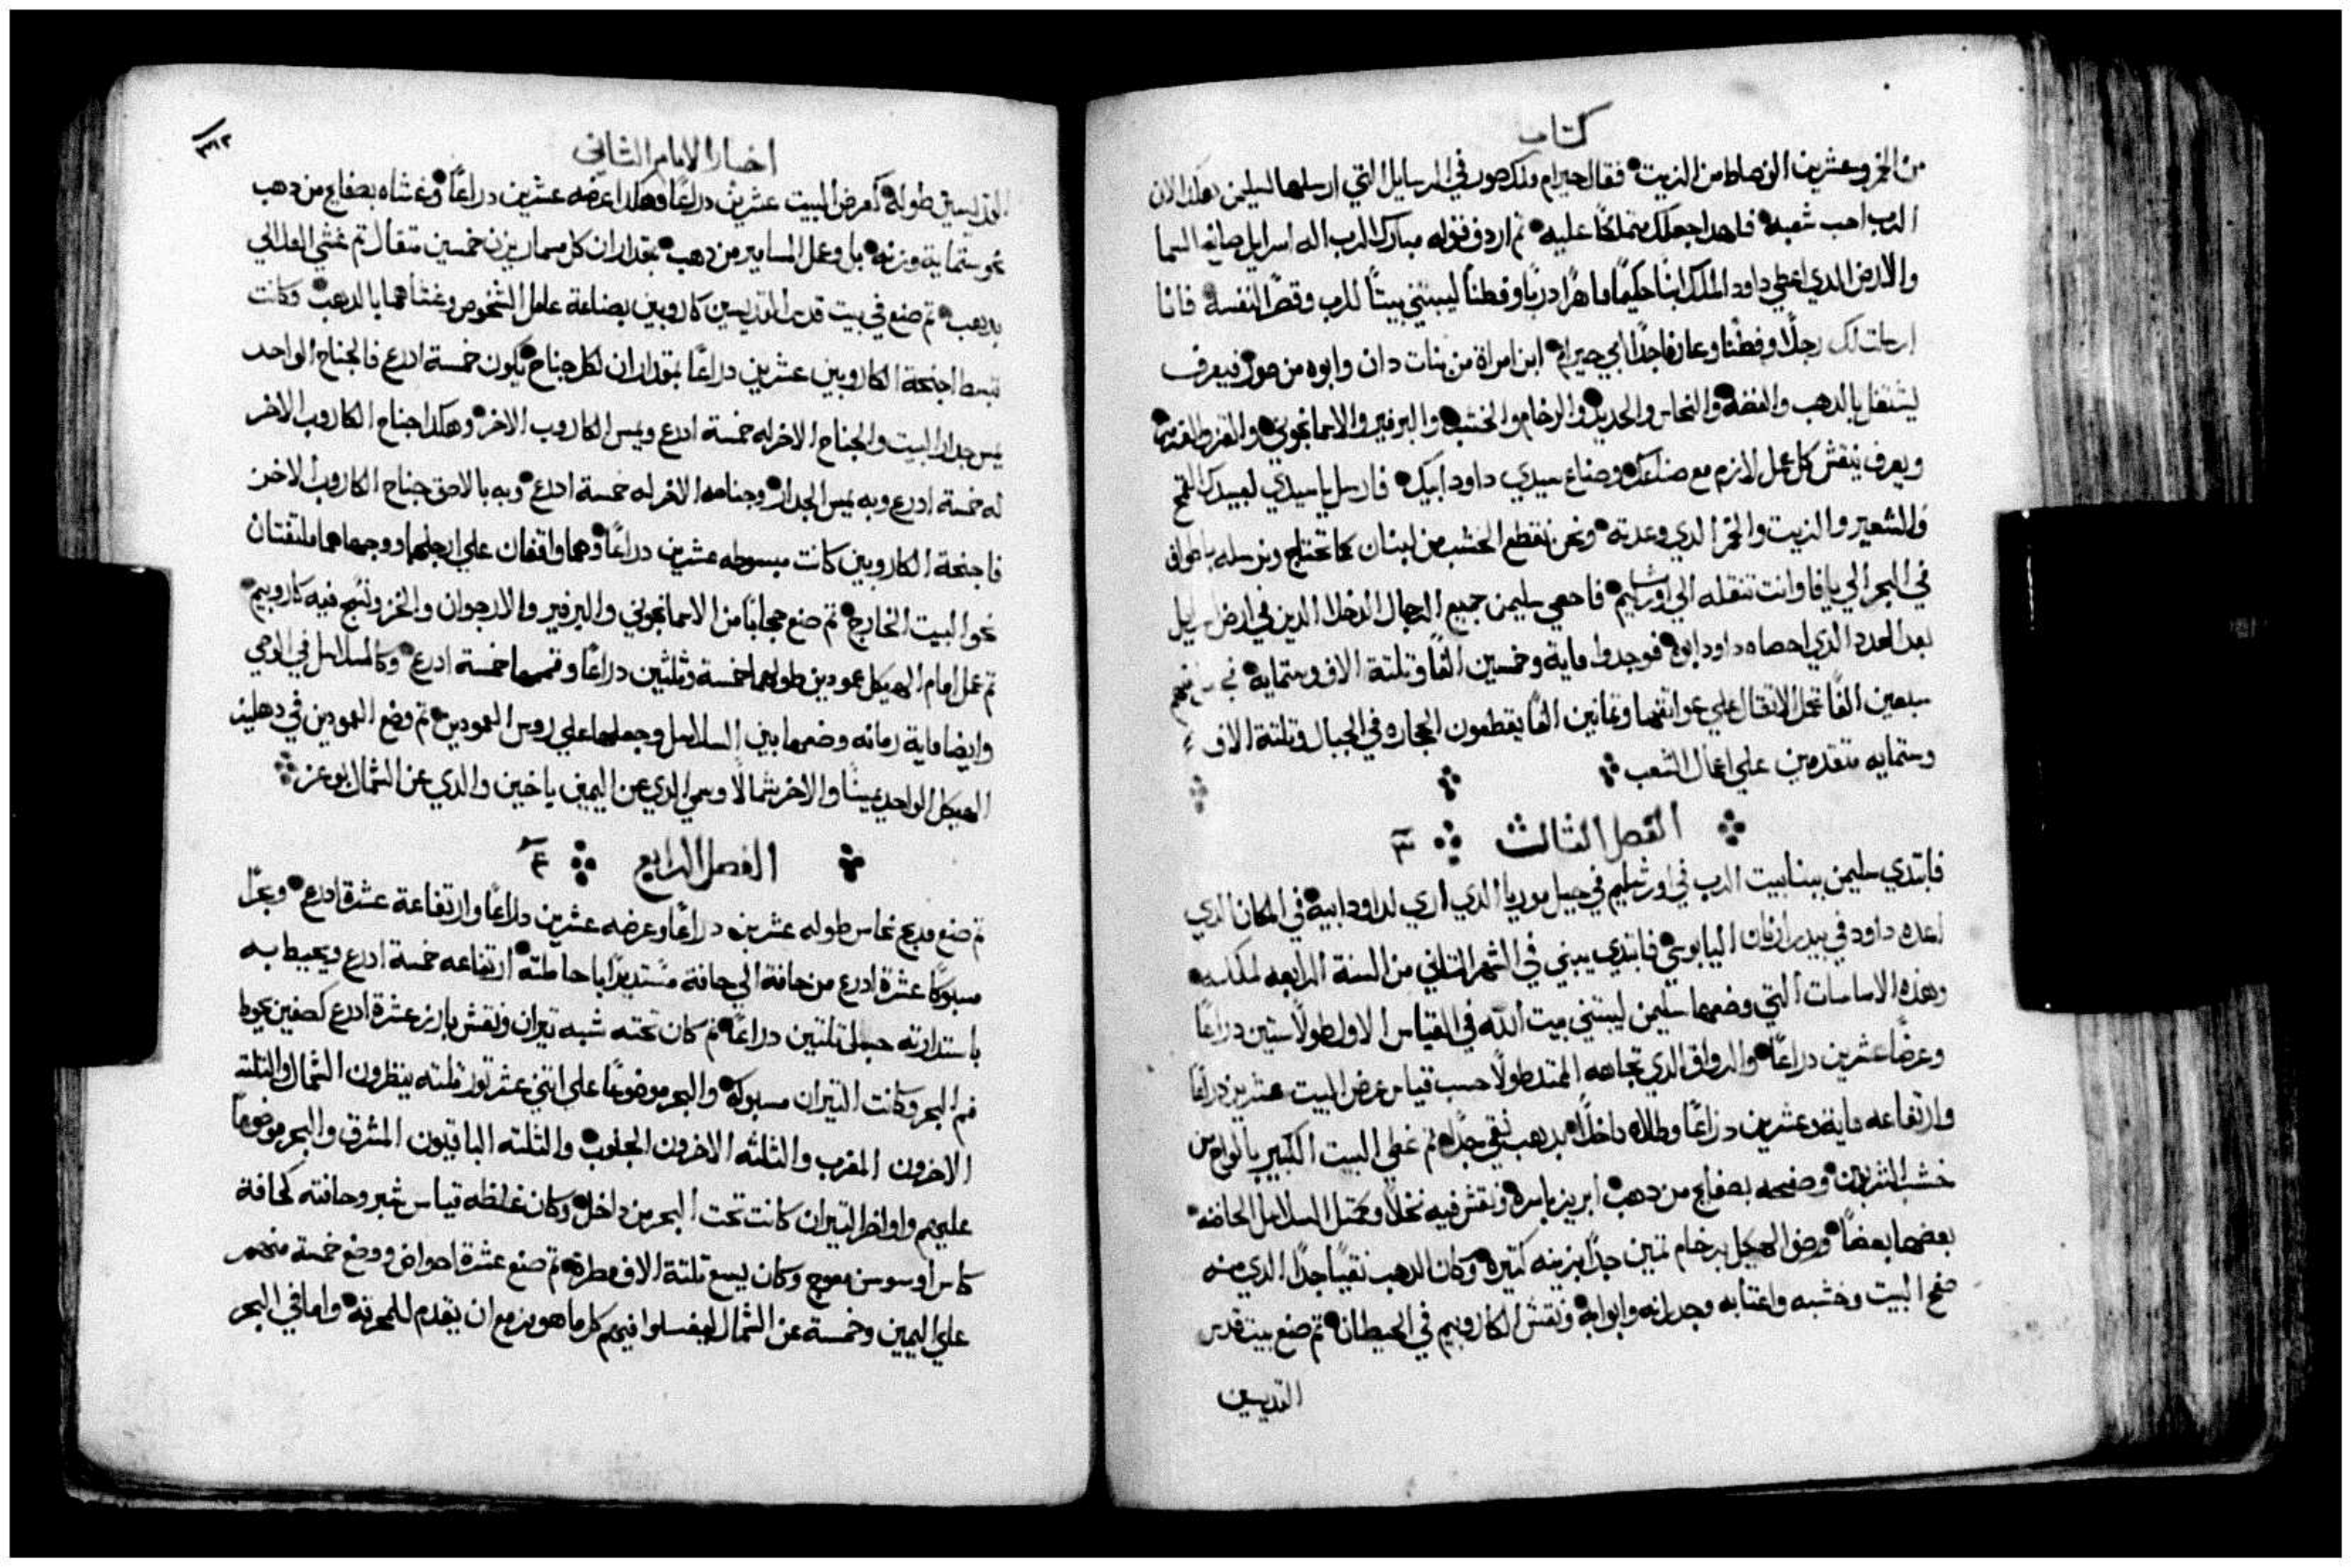 كتاب
من الخمر وعشرين الف ضابط من الزيت فقال حيرام ملك صور في الرسايل التي ارسلها لسليمن هكذا لان
الرب احب شعبه فلهدا جعلك متملكًا عليه ثم اردف قوله مبارك الرب اله اسرايل صانع السما
والارض الدي اعطي داود الملك ابنًا حكيمًا ماهرًا دربًا وفطنًا ليبتني بيتًا للرب وقصرًا لنفسه فانا
ارسلت لك رجلًا وفطنًا وعارفا جدًا ابي حيرام ابن امراة من بنات دان وابوه من صور فيعرف
يشتغل بالدهب والفضه والنحاس والحديد والرخام والخشب والبرفير والاسمانجوني والقز والقرمز
ويعرف ينقش كل عمل لازم مع صناعك وصناع سيدي داود ابيك فارسل ياسيدي لعبيدك القمح
والشعير والزيت والخمر الدي وعدته ونحن نقطع الخشب من لبنان كما تحتاج ونرسله باطواف
في البحر الي يافا وانت تنقله الي اورشليم فاحصي سليمن جميع الرجال الدخلا الدين في ارض اسرايل
بعد العدد الدي احصاه داود ابوه فوجدوا ماية وخمسين الفًا وتلتة الاف وستماية
سبعين الفًا تحمل الاتقال علي عواتقها وتمانين الفًا يقطعون الحجاره في الجبال وتلتة الاف
وستمايه متقدمين علي اعمال الشعب
الفصل الثالث ٣
فابتدي سليمن ببنا بيت الرب في اورشليم في جبل موريا الدي اري لداود ابيه في المكان الدي
اعده داود في بيدر ازنان اليابوسي فابتدي يبني في الشهر التاني من السنة الرابعه لملكه
وهذه الاساسات التي وضعها سليمن ليبتني بيت الله في القياس الاول طولًا ستين دراعًا
وعرضًا عشرين دراعًا والرواق الدي تجاهه الممتد طولًا حسب قياس عرض البيت عشرين دراعًا
وارتفاعه ماية وعشرين دراعًا وطلاه داخلًا بدهب نقي جدًا ثم غطي البيت الكبير بالواح من
خشب الشربين وصفحه بصفايح من دهب ابريز باسره ونقش فيه نخلًا وكمتل السلاسل الحاضنه
بعضها بعضًا ورض الهيكل برخام تمين جدًا بزينه كتيره وكان الدهب نقيًا جدًا الدي منه
صفح البيت وخشبه واعتابه وجدرانه وابوابه ونقش الكاروبيم في الحيطان ثم صنع بيت قدس
القديسين
اخبار الايام الثاني
٣١٢
القديسين طوله كعرض البيت عشرين دراعًا وهكدا عرضه عشرين دراعًا وغشاه بصفايح من دهب
نحو ستماية وزنه بل وعمل المسامير من دهب بمقدار ان كل مسمار يزن خمسين متقال ثم غشي العلالي
بدهب ثم صنع في بيت قدس القديسين كاروبين بصناعة عامل الشخوص وغشاهما بالدهب وكانت
تبسط اجنحة الكاروبين عشرين دراعًا بمقدار ان لكل جناح يكون خمسة ادرع فالجناح الواحد
يمس جدار البيت والجناح الاخر له خمسة ادرع ويمس الكاروب الاخر وهكدا جناح الكاروب الاخر
له خمسة ادرع وبه يمس الجدار وجناحه الاخر له خمسة ادرع وبه بالاصق جناح الكاروب الاخر
فاجنحة الكاروبين كانت مبسوطه عشرين دراعًا وهما واقفان علي ارجلهما ووجهاهما ملتفتان
نحو البيت الخارج ثم صنع حجابًا من الاسمانجوني والبرفير والارجوان والخز ونسج فيه كاروبيم
ثم عمل امام الهيكل عمودين طولهما خمسة وتلتين دراعًا وقممهما خمسة ادرع وكالسلاسل في الوحي
وايضا ماية رمانه وضمها بين السلاسل وجعلهما علي روس العمودين ثم وضع العمودين في دهليز
الهيكل الواحد يمينًا والاخر شمالًا وسمي الدي عن اليمين ياخين والدي عن الشمال بوعز
الفصل الرابع ٤
ثم صنع مدبح نحاس طوله عشرين دراعًا وعرضه عشرين دراعًا وارتفاعه عشرة ادرع وبحرًا
مسبوكًا عشرة ادرع من حافة الي حافة مستديرًا باحاطته ارتفاعه خمسة ادرع ويحيط به
باستدارته حبل تلتين دراعًا ثم كان تحته شبه تيران ونقش بارز عشرة ادرع كصفين يحوط
فم البحر وكانت التيران مسبوكه والبحر موضوعًا علي اتني عشر تور تلته ينظرون الشمال والتلته
الاخرون المغرب والتلته الاخرون الجنوب والتلته الباقيون المشرق والبحر موضوعًا
عليهم واواخر التيران كانت تحت البحر من داخل وكان غلظه قياس شبر وحافته كحافة
كاس او سوسن معوج وكان يسع تلتة الاف مطره ثم صنع عشرة احواض ووضع خمسة منهم
علي اليمين وخمسة عن الشمال ليغسلوا فيهم كل ما هو مزمع ان يقدم للمحرقة واما في البحر